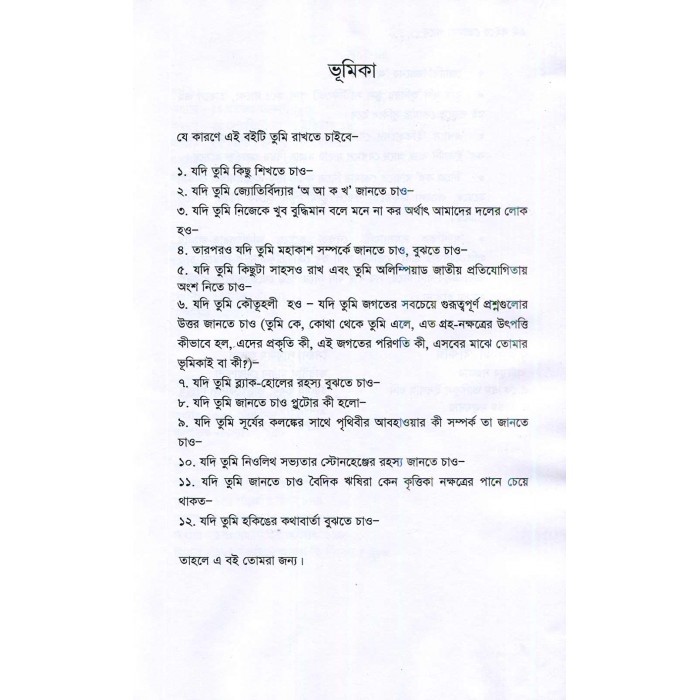 ভূমিকা
যে কারণে এই বইটি তুমি রাখতে চাইবে–
১. যদি তুমি কিছু শিখতে চাও–
২. যদি তুমি জ্যোতির্বিদ্যার ‘অ আ ক খ’ জানতে চাও–
৩. যদি তুমি নিজেকে খুব বুদ্ধিমান বলে মনে না কর অর্থাৎ আমাদের দলের লোক
হও–
৪. তারপরও যদি তুমি মহাকাশ সম্পর্কে জানতে চাও, বুঝতে চাও–
৫. যদি তুমি কিছুটা সাহসও রাখ এবং তুমি অলিম্পিয়াড জাতীয় প্রতিযোগিতায়
অংশ নিতে চাও–
৬. যদি তুমি কৌতূহলী হও – যদি তুমি জগতের সবচেয়ে গুরুত্বপূর্ণ প্রশ্নগুলোর
উত্তর জানতে চাও (তুমি কে, কোথা থেকে তুমি এলে, এত গ্রহ-নক্ষত্রের উৎপত্তি
কীভাবে হল, এদের প্রকৃতি কী, এই জগতের পরিণতি কী, এসবের মাঝে তোমার
ভূমিকাই বা কী?)–
৭. যদি তুমি ব্ল্যাক-হোলের রহস্য বুঝতে চাও–
৮. যদি তুমি জানতে চাও প্লুটোর কী হলো–
৯. যদি তুমি সূর্যের কলঙ্কের সাথে পৃথিবীর আবহাওয়ার কী সম্পর্ক তা জানতে
চাও–
১০. যদি তুমি নিওলিথ সভ্যতার স্টোনহেঞ্জের রহস্য জানতে চাও–
১১. যদি তুমি জানতে চাও বৈদিক ঋষিরা কেন কৃত্তিকা নক্ষত্রের পানে চেয়ে
থাকত–
১২. যদি তুমি হকিঙের কথাবার্তা বুঝতে চাও–
তাহলে এ বই তোমরা জন্য।